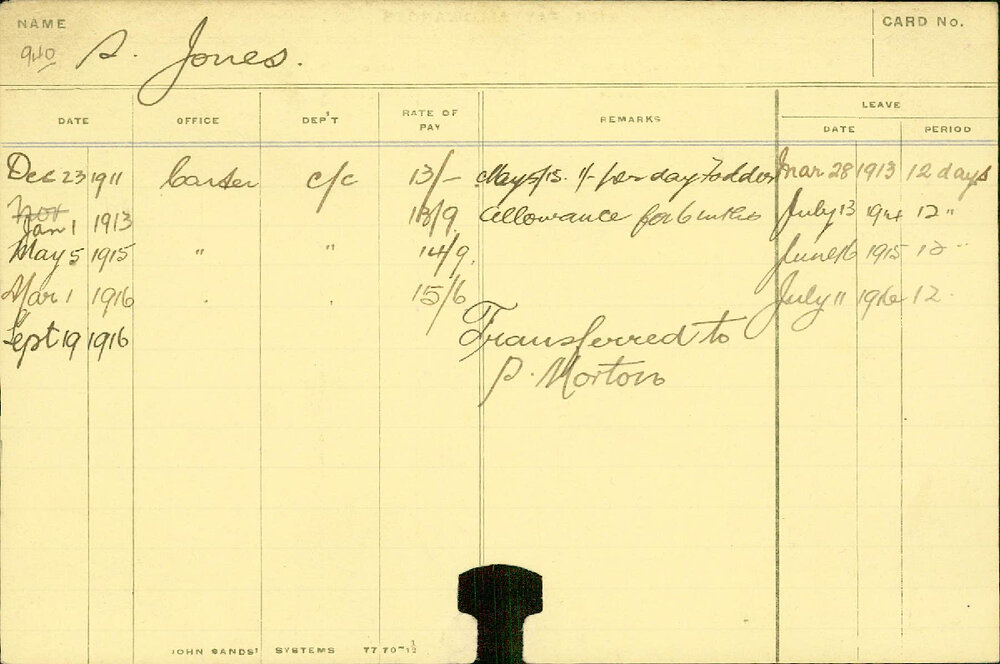 NAME
CARD No.
940 S. Jones.
LEAVE
DATE OFFICE DEP'T RATE OF PAY REMARKS DATE PERIOD
Dec 23 1911 Carter c/c 13/- May 5/15. 1/- per day Fodder Mar 28 1913 12 days
Jan 1 1913 13/9 allowance for 6 mths July 13 1914 12 "
May 5 1915 " " 14/9. June 16 1915 12 "
Mar 1 1916 . . 15/6 July 11 1916 12 .
Sept 19 1916 Transferred to
S. Morton
JOHN SANDS' SYSTEMS 7770-12